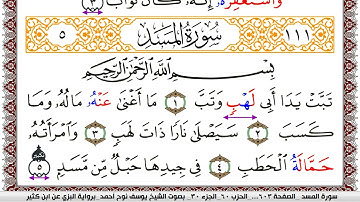 وَاسْتَغْفِرْهُ إِنَّهُ كَانَ تَوَّابًا ٣
١١١ سُورَةُ الْمَسَدِ ٥
بِسْمِ اللَّهِ الرَّحْمَٰنِ الرَّحِيمِ
تَبَّتْ يَدَا أَبِي لَهْبٍ وَتَبَّ ١ مَا أَغْنَىٰ عَنْهُ مَالُهُ وَمَا
كَسَبَ ٢ سَيَصْلَىٰ نَارًا ذَاتَ لَهَبٍ ٣ وَامْرَأَتُهُ
حَمَّالَةُ الْحَطَبِ ٤ فِي جِيدِهَا حَبْلٌ مِّن مَّسَدٍ ٥
سورة المسد الصفحة ٦٠٣ ... الحزب ٦٠ الجزء ٣٠ بصوت الشيخ يوسف نوح أحمد برواية البزي عن ابن كثير